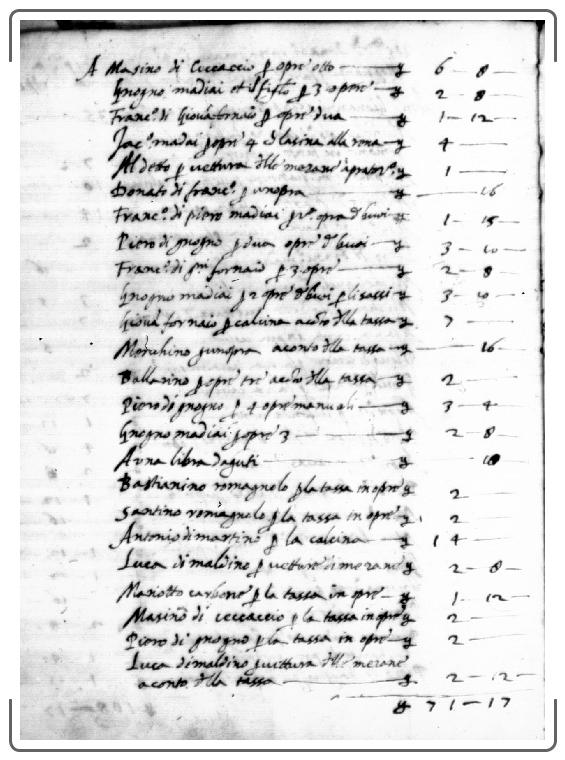 A Masino di Ceccaccio p opre otto — 6 – 8 –
Gnogno madiai et p 3 opre — 2 – 8
Franc.o di Giova fornaio p opre dua — 1 – 12 –
Jac.o madiai p opre 4 d lasina alla rena — 4 –
Al detto p vettura dlle morane — 1 –
Donato di franc.o p unopra — 16
Franc.o di piero madiai p opra d buoi — 1 – 15 –
Piero di gnogno p dua opre d buoi — 3 – 10 –
Franc.o di fornaio p 3 opre — 2 – 8
Gnogno madiai p 2 opre d buoi p li sassi — 3 – 10 –
Giova fornaio p calcina aconto dlla tassa — 7 –
Morchino p unopra aconto dlla tassa — 16
Ballarino p opre tre aconto dlla tassa — 2
Piero di gnogno p 4 opre manuali — 3 – 4
Gnogno madiai p opre 3 — 2 – 8
A una libra daguti — 18
Bastianino romagnolo p la tassa in opre 2
Santino romagnolo p la tassa in opre 2
Antonio di martino p la calcina — 14 –
Luca di maldino p vetture di morane 2 – 8 –
Mariotto carbone p la tassa in opre — 1 – 12 –
Masino di ceccaccio p la tassa in opre 2 –
Piero di gnogno p la tassa in opre 2 –
Luca di maldino p vittura dlle morane
aconto dlla tassa — 2 – 12 –
71 – 17